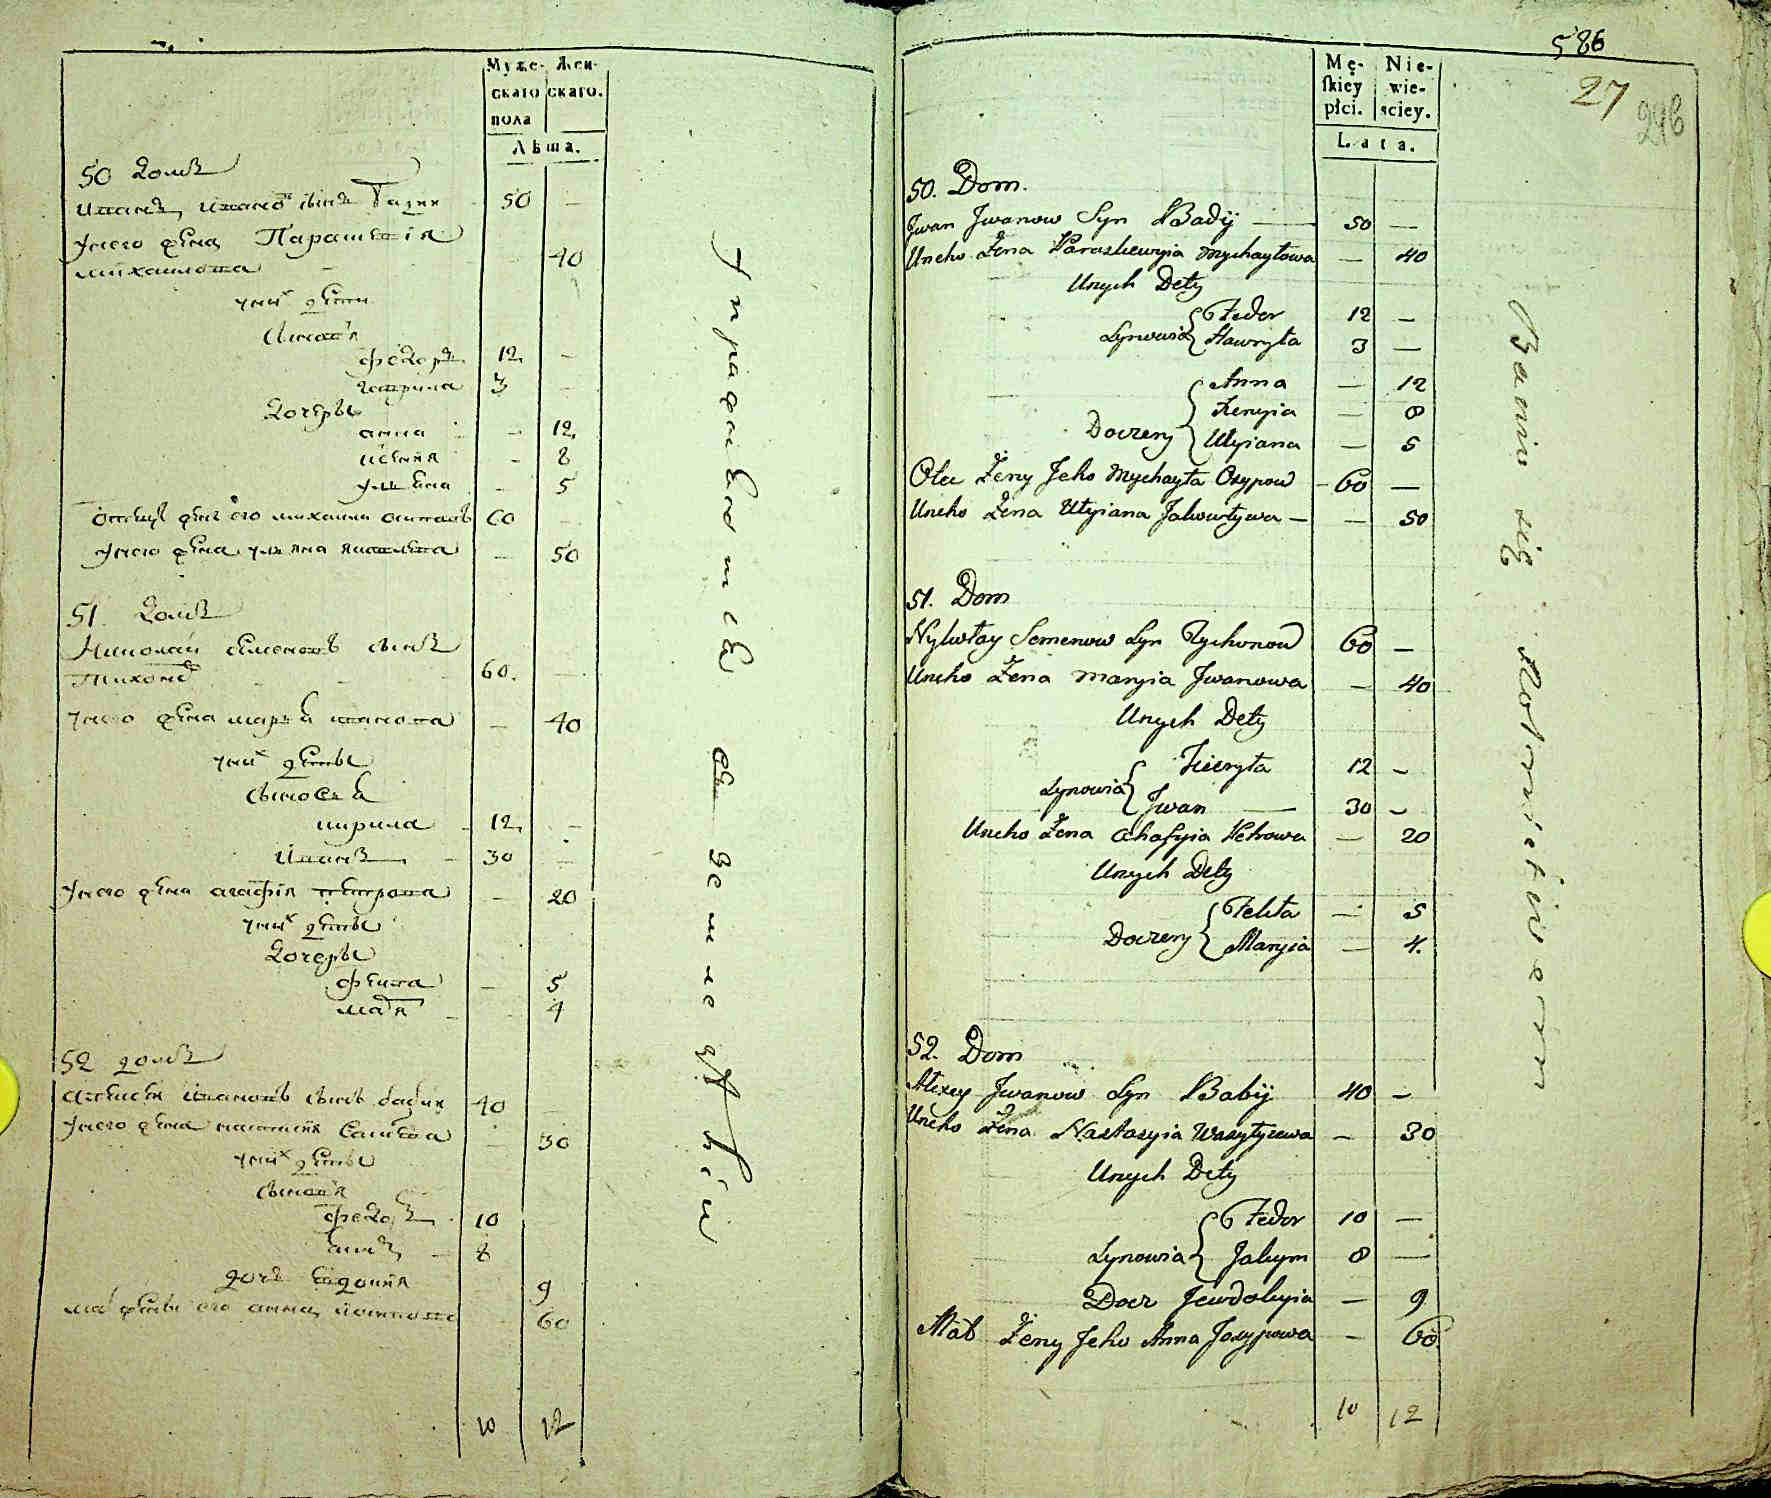 Муже-
скаго
пола
Жен-
скаго.
Лѣта.
50 домъ
Иванъ Ивановъ сынъ Бадий 50 —
у него жена Параскевія
Михайлова — 40
у них дети
Синовя
Федоръ 12 —
Гаврила 3 —
Дочеры
Анна — 12
Ксения — 8
Ульяна — 5
Отецъ жены его Михаила Осиповъ 60 —
у него жена Ульяна Яковлева — 50
51. домъ
Николай Семеновъ сынъ
Тихоновъ 60. —
у него жена Мария Иванова — 40
у них дети
Сыновья
Кирила 12 —
Иванъ 30 —
у него жена Агафія Петрова — 20
у них дети
Дочеры
Фекла — 5
Мария — 4
52 домъ
Алексей Ивановъ сынъ Бабий 40 —
у него жена Настасия — 30
у них дети
Сыновя
Федоръ 10
8
дочь Евдокия 9
мать жены его Анна 60
10 12
586
27
246
Mę-
ſkiey
płci.
Nie-
wie-
sciey.
Lata.
50. Dom.
Jwan Jwanow Syn Badij — 50 —
Uneho Żena Paraskewyia Mychayłowa — 40
Unych Dety
Synowia { Fedor 12 —
Hawryła 3 —
Doczery { Anna — 12
Xenyia — 8
Ulyiana — 5
Otec Żeny Jeho Mychayła Osypow — 60 —
Uneho Żena Ulyiana Jakowlywa — — 50
51. Dom
Nykołay Semenow Syn Tychonow 60 —
Uneho Żena Maryia Jwanowa — 40
Unych Dety
Synowia { Kieryła 12 —
Jwan — 30 —
Uneho Żena Ahafyia Petrowa — 20
Unych Dety
Doczery { Fekła — 5
Maryia — 4.
52. Dom
Alexey Jwanow Syn Babij 40 —
Uneho Żena Nastasyia Wasylyjewa — 30
Unych Dety
Synowia { Fedor 10 —
Jakym 8 —
Docz Jewdokyia — 9
Mat Żeny Jeho Anna Josypowa — 60.
10 12